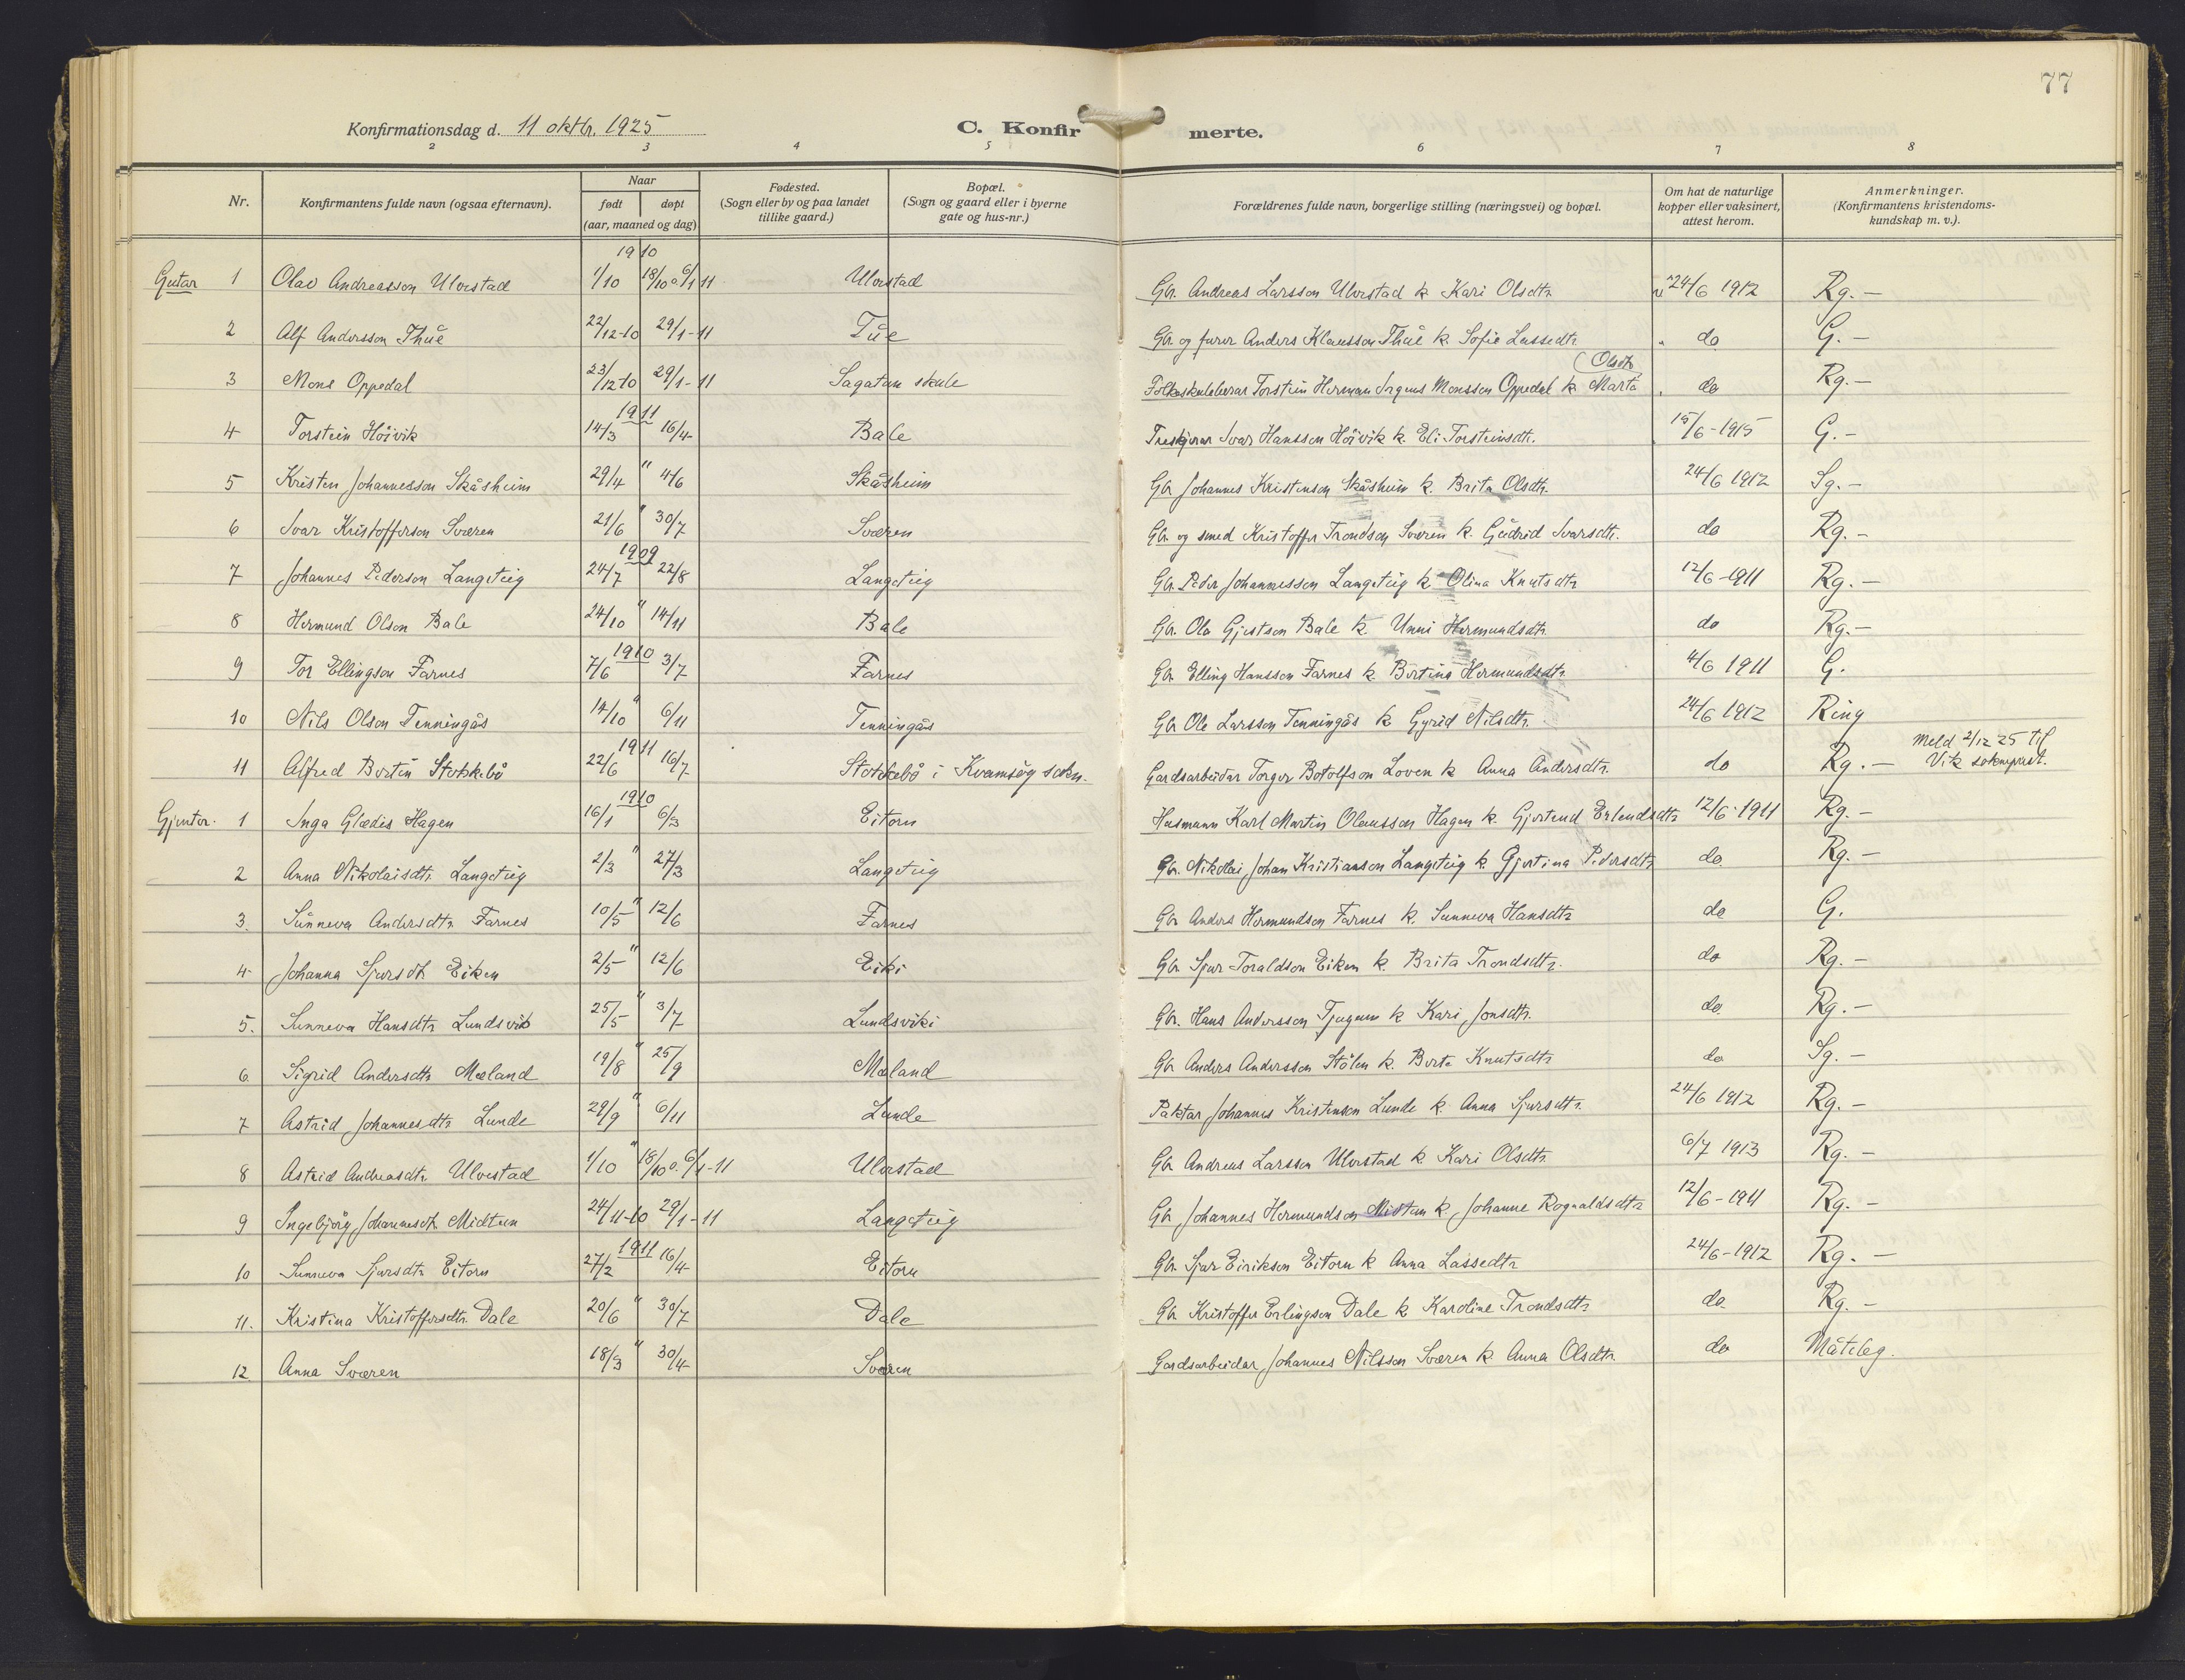 77
Konfirmationsdag d. 11 oktbr. 1925 C. Konfirmerte.
2 3 4 5 6 7 8
Nr. Konfirmantens fulde navn (ogsaa efternavn). Naar født døpt (aar, maaned og dag) Fødested. (Sogn eller by og paa landet tillike gaard.) Bopæl. (Sogn og gaard eller i byerne gate og hus-nr.) Forældrenes fulde navn, borgerlige stilling (næringsvei) og bopæl. Om hat de naturlige kopper eller vaksinert, attest herom. Anmerkninger. (Konfirmantens kristendomskundskap m. v.).
1910
Gutar 1 Olav Andreasson Ulvestad 1/10 18/10 o. 6/1 11 Ulvestad Gbr. Andreas Larsson Ulvestad k Kari Olsdtr. v 24/6 1912 Rg. –
2 Alf Andersson Thue 22/12-10 29/1-11 Tue Gbr og furer Anders Klausson Thue k. Sofie Lassedtr. " do G. –
3 Mons Oppedal 23/12 10 29/1-11 Sagatun skule Folkeskulelærar Torstein Herman Ingeus Monsson Oppedal k. Marta (Olsdtr. do Rg. –
1911
4 Torstein Höivik 14/3 16/4 Bale Treskjerar Ivar Hansson Höivik k. Eli Torsteinsdtr. 15/6-1915 G. –
5 Kristen Johannesson Skåsheim 29/4 " 4/6 Skåsheim Gbr Johannes Kristenson Skåsheim k. Brita Olsdtr. 24/6 1912 Sg. –
6 Ivar Kristofferson Sværen 21/6 " 30/7 Sværen Gbr. og smed Kristoffer Trondson Sværen k. Gudrid Ivarsdtr. do Rg. –
1909
7 Johannes Pederson Langeteig 24/7 22/8 Langeteig Gbr. Peder Johannesson Langeteig k Olina Knutsdtr 12/6-1911 Rg. –
8 Hermund Olson Bale 24/10 " 14/11 Bale Gbr. Ola Gjestson Bale k. Unni Hermundsdtr. do Rg. –
1910
9 Tor Ellingson Farnes 7/6 3/7 Farnes Gbr. Elling Hansson Farnes k. Bertina Hermundsdtr. 4/6 1911 G.
10 Nils Olson Tenningås 14/10 " 6/11 Tenningås Gbr Ole Larsson Tenningås k Gyrid Nilsdtr. 24/6 1912 Ring
1911
11 Alfred Bertin Stokkebö 22/6 16/7 Stokkebö i Kvamsöy sokn. Gardsarbeidar Torger Botolfson Loven k Anna Andersdtr. do Rg. – Meld 2/12 25 til
Vik sokneprest.
1910
Gjentor. 1 Inga Glædis Hagen 16/1 6/3 Eitorn Husmann Karl Martin Olausson Hagen k. Gjertrud Erlendsdtr 12/6-1911 Rg. –
2 Anna Nikolaisdtr. Langeteig 2/3 " 27/3 Langeteig Gbr. Nikolai Johan Kristianson Langeteig k. Gjertina Pedersdtr do Rg. –
3. Sunneva Andersdtr. Farnes 10/5 " 12/6 Farnes Gbr Anders Hermundson Farnes k. Sunneva Hansdtr do G.
4 Johanna Sjursdtr Eiken 2/5 " 12/6 Eiki Gbr Sjur Toraldson Eiken k. Brita Trondsdtr. do Rg. –
5. Sunneva Hansdtr Lundsvik 25/5 " 3/7 Lundsviki Gbr. Hans Andersson Tjugum k Kari Jonsdtr. do. Rg. –
6. Sigrid Andersdtr Mæland 19/8 " 25/9 Mæland Gbr Anders Andersson Stölen k. Berta Knutsdtr do Sg. –
7 Astrid Johannesdtr Lunde 29/9 " 6/11 Lunde Paktar Johannes Kristenson Lunde k Anna Sjursdtr. 24/6 1912 Rg. –
8 Astrid Andreasdtr. Ulvestad 1/10 " 18/10 o. 6/1-11 Ulvestad Gbr Andreas Larsson Ulvestad k. Kari Olsdtr. 6/7 1913 Rg. –
9 Ingebjörg Johannesdtr Midtun 24/11-10 29/1-11 Langeteig Gbr Johannes Hermundson Midtun k. Johanne Rognaldsdtr 12/6-1911 Rg. –
1911
10 Sunneva Sjursdtr Eitorn 27/2 16/4 Eitorn Gbr. Sjur Eirikson Eitorn k Anna Lassedtr 24/6-1912 Rg. –
11. Kristina Kristoffersdtr. Dale 20/6 " 30/7 Dale Gbr Kristoffer Erlingson Dale k Karoline Trondsdtr do. Rg. –
12 Anna Sværen 18/3 " 30/4 Sværen Gardsarbeidar Johannes Nilsson Sværen k. Anna Olsdtr. do Måteleg.